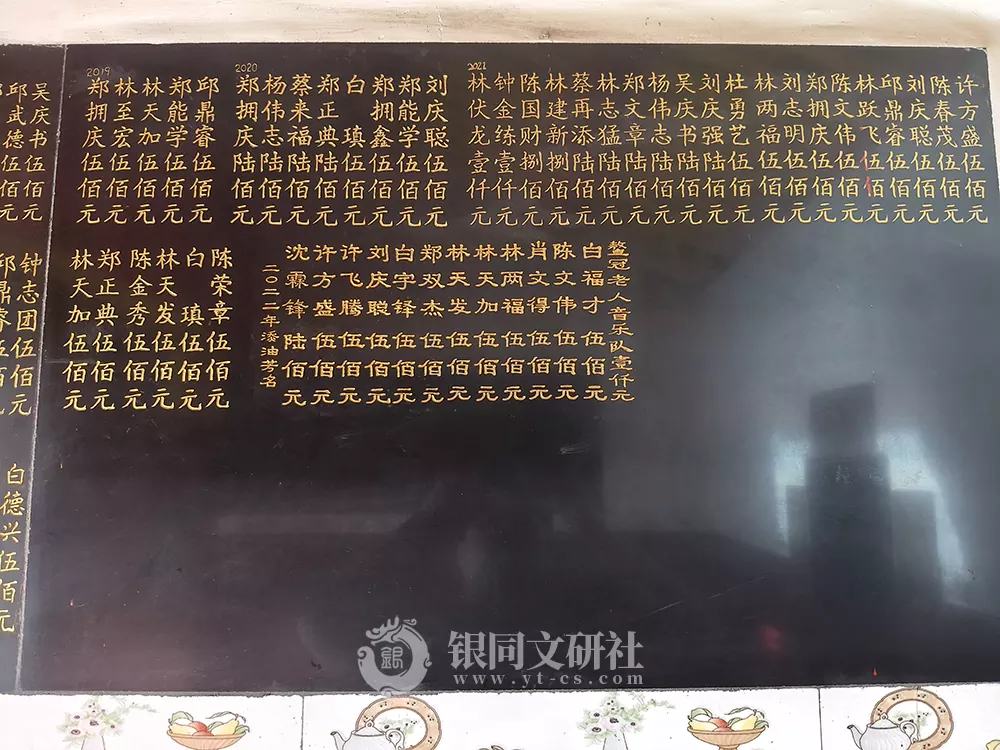 邱武德伍佰元
吴庆书伍佰元
邱鼎睿伍佰元
钟志团伍佰元
白德兴伍佰元
2019
郑拥庆伍佰元
林至宏伍佰元
林天加伍佰元
郑能学伍佰元
邱鼎睿伍佰元
2020
郑拥庆陆佰元
杨伟志陆佰元
蔡来福陆佰元
郑正典陆佰元
白瑱伍佰元
郑拥鑫伍佰元
郑能学伍佰元
刘庆聪伍佰元
2021
林伏龙壹仟元
钟金练壹仟元
陈国财捌佰元
林建新捌佰元
蔡再添陆佰元
林志猛陆佰元
郑文章陆佰元
杨伟志陆佰元
吴庆书陆佰元
刘庆强陆佰元
杜勇艺伍佰元
林两福伍佰元
刘志明伍佰元
郑拥庆伍佰元
陈文伟伍佰元
林跃飞伍佰元
邱鼎睿伍佰元
刘庆聪伍佰元
陈春茂伍佰元
许方盛伍佰元
林天加伍佰元
郑正典伍佰元
陈金秀伍佰元
林天发伍佰元
白瑱伍佰元
陈荣章伍佰元
二〇二一年添油芳名
沈霖锋陆佰元
许方盛伍佰元
许飞腾伍佰元
刘庆聪伍佰元
白宇铎伍佰元
郑双杰伍佰元
林天发伍佰元
林天加伍佰元
林两福伍佰元
肖文得伍佰元
陈文伟伍佰元
白福才伍佰元
鳌冠老人音乐队壹仟元
银同文研社
www.yt-cs.com